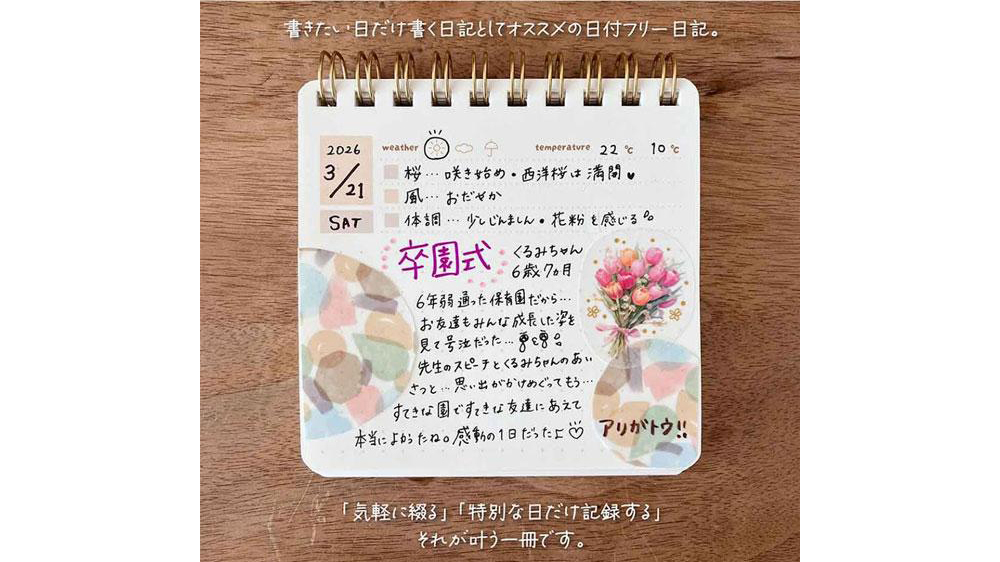 書きたい日だけ書く日記としてオススメの日付フリー日記。
2026
3/21
SAT
weather
temperature 22 ℃ 10 ℃
桜… 咲き始め・西洋桜は満開♥
風… おだやか
体調… 少しじんましん・花粉を感じる
卒園式
くるみちゃん
6歳7ヵ月
6年弱通った保育園だから…
お友達もみんな成長した姿を
見て号泣だった…
先生のスピーチとくるみちゃんのあい
さつと…思い出がかけめぐってもう…
すてきな園ですてきな友達にあえて
本当によかったね。感動の1日だったよ♡
アリガトウ!!
「気軽に綴る」「特別な日だけ記録する」
それが叶う一冊です。